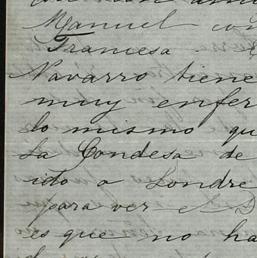 Manuel con
Francesa
Navarro tiene
muy enfer
lo mismo qu
La Condesa de
ido a Londre
para ver
es que no ha